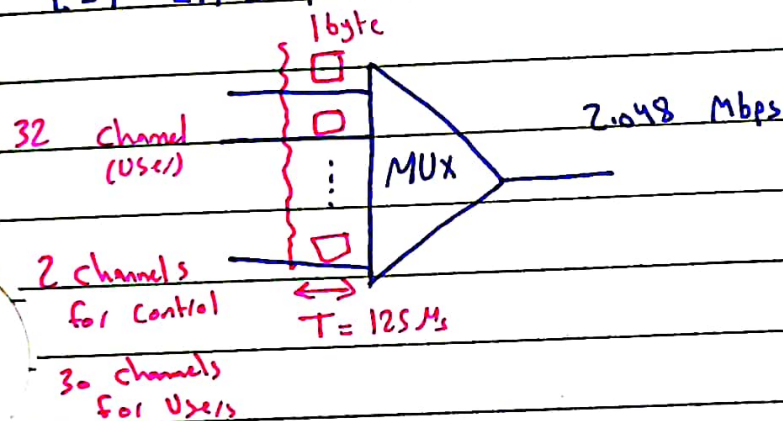 1 byte
32 channel
(User)
MUX
2.048 Mbps
2 channels
for Control
T = 125 Ms
30 channels
for Users